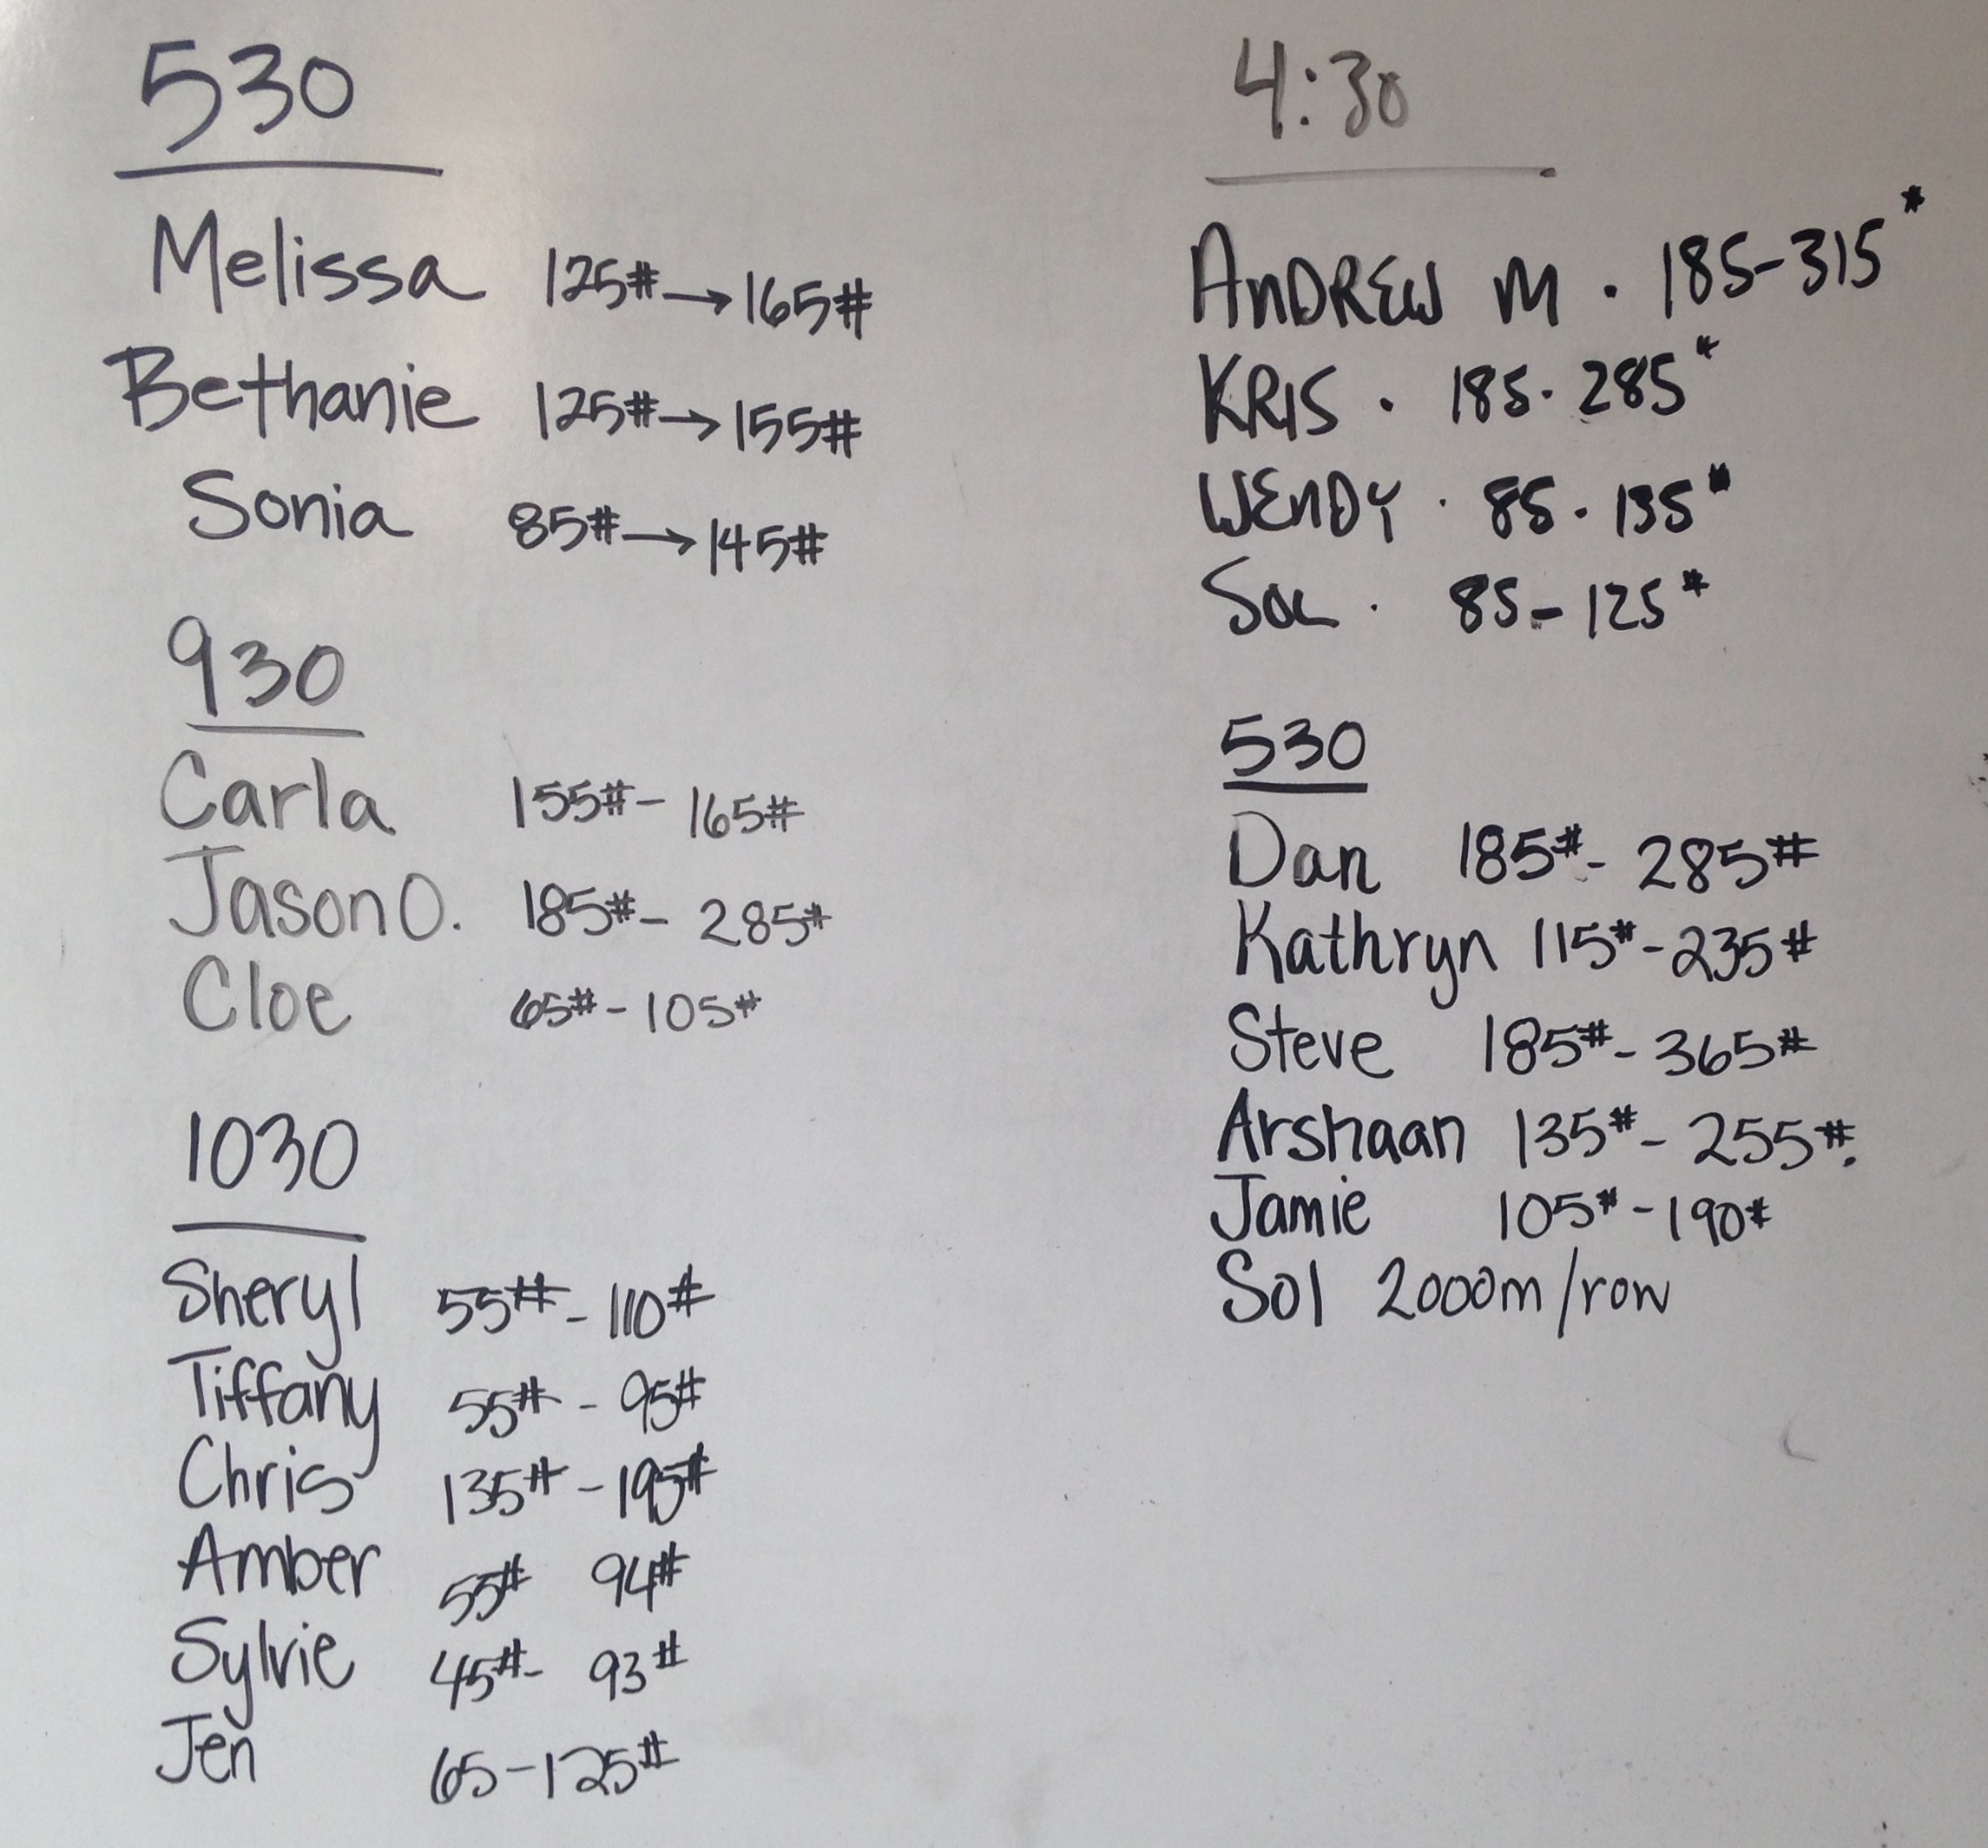 530
Melissa 125# → 165#
Bethanie 125# → 155#
Sonia 85# → 145#
930
Carla 155# - 165#
Jason O. 185# - 285#
Cloe 65# - 105#
1030
Sheryl 55# - 110#
Tiffany 55# - 95#
Chris 135# - 195#
Amber 55# 94#
Sylvie 45# - 93#
Jen 65 - 125#
4:30
ANDREW M . 185-315#
KRIS . 185 . 285#
WENDY . 85 . 135#
SOL . 85 - 125#
530
Dan 185# - 285#
Kathryn 115# - 235#
Steve 185# - 365#
Arshaan 135# - 255#.
Jamie 105# - 190#
Sol 2000m/row